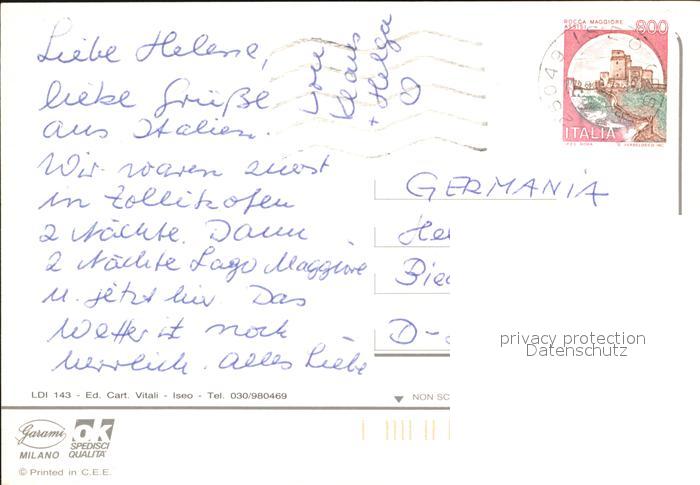 Liebe Helene,
liebe Grüße
aus Italien.
Wir waren zuerst
in Zollikofen
2 Nächte. Dann
2 Nächte Lago Maggiore
u. jetzt hier Das
Wetter ist noch
herrlich. Alles Liebe
von
Klaus
+ Helga
ROCCA MAGGIORE
ASSISI
800
ITALIA
I.P.Z.S. ROMA
25049
GERMANIA
He
Bie
D-
privacy protection
Datenschutz
LDI 143 - Ed. Cart. Vitali - Iseo - Tel. 030/980469
NON SC
Garami
MILANO
ok
SPEDISCI
QUALITA'
© Printed in C.E.E.